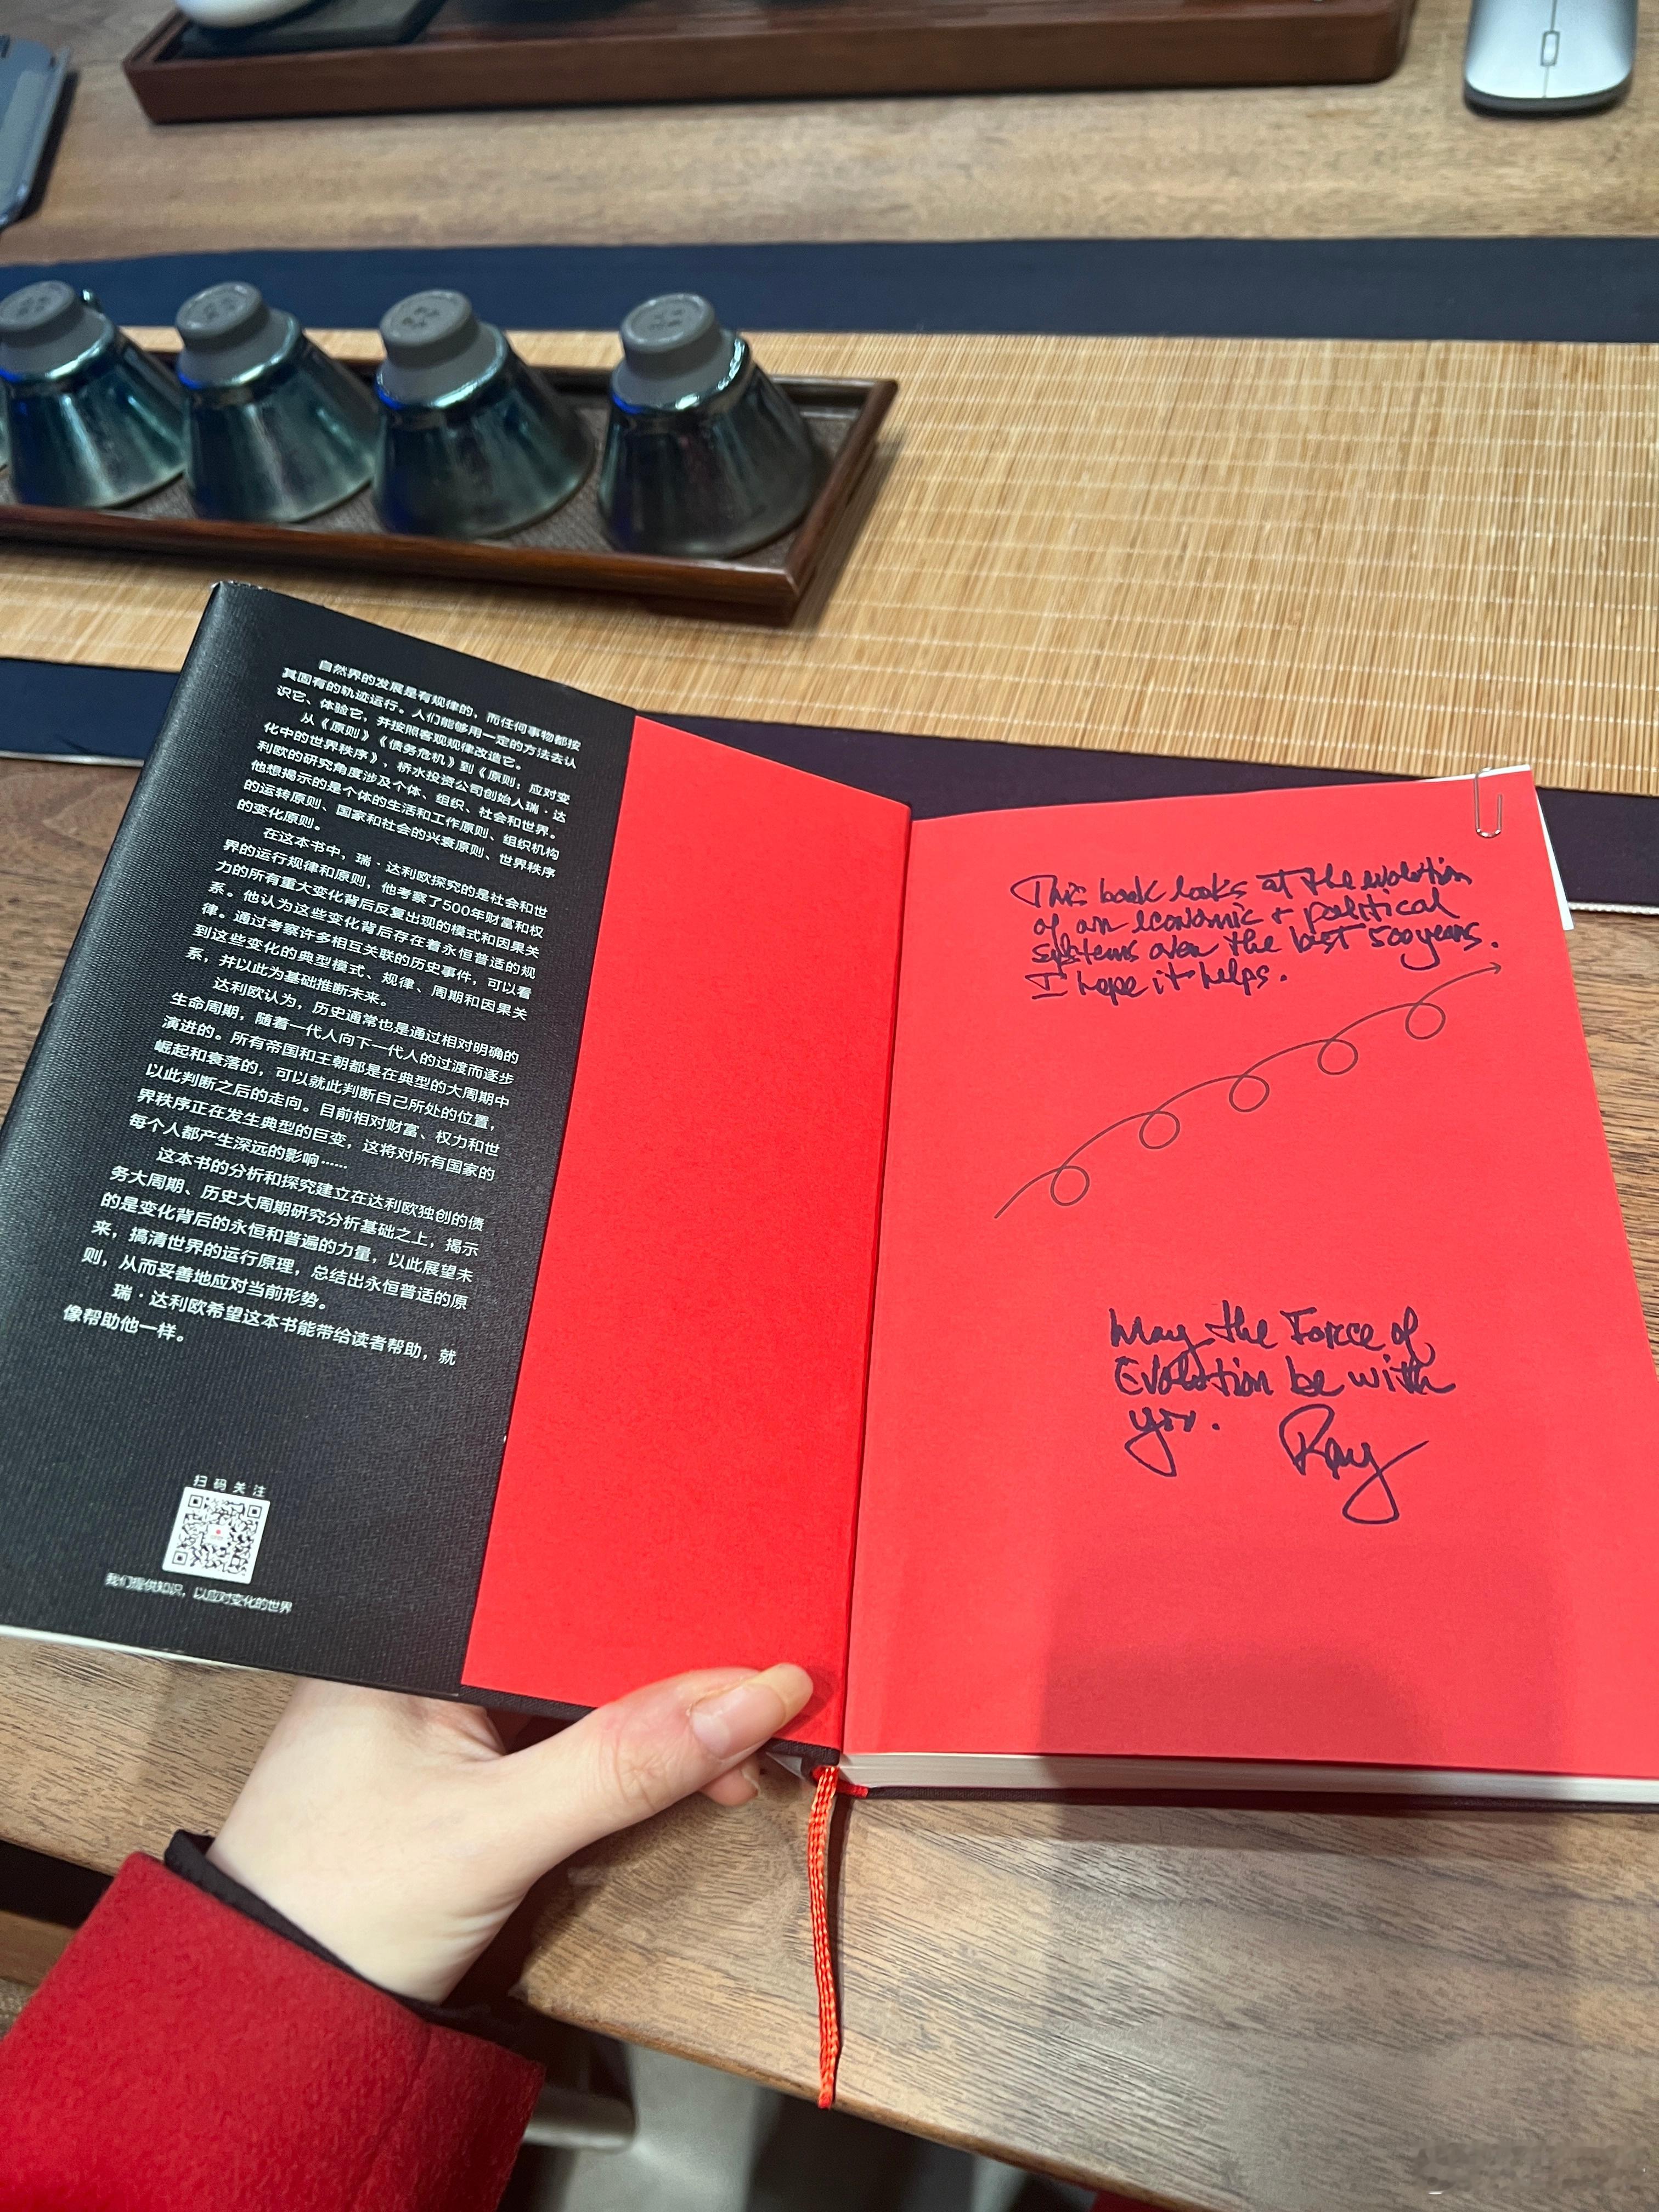 自然界的发展是有规律的，而任何事物都按
其固有的轨迹运行。人们能够用一定的方法去认
识它、体验它，并按照客观规律改造它。
从《原则》《债务危机》到《原则：应对变
化中的世界秩序》，桥水投资公司创始人瑞·达
利欧的研究角度涉及个体、组织、社会和世界。
他想揭示的是个体的生活和工作原则、组织机构
的运转原则、国家和社会的兴衰原则、世界秩序
的变化原则。
在这本书中，瑞·达利欧探究的是社会和世
界的运行规律和原则，他考察了500年财富和权
力的所有重大变化背后反复出现的模式和因果关
系。他认为这些变化背后存在着永恒普适的规
律。通过考察许多相互关联的历史事件，可以看
到这些变化的典型模式、规律、周期和因果关
系，并以此为基础推断未来。
达利欧认为，历史通常也是通过相对明确的
生命周期，随着一代人向下一代人的过渡而逐步
演进的。所有帝国和王朝都是在典型的大周期中
崛起和衰落的，可以就此判断自己所处的位置，
以此判断之后的走向。目前相对财富、权力和世
界秩序正在发生典型的巨变，这将对所有国家的
每个人都产生深远的影响……
这本书的分析和探究建立在达利欧独创的债
务大周期、历史大周期研究分析基础之上，揭示
的是变化背后的永恒和普遍的力量，以此展望未
来，搞清世界的运行原理，总结出永恒普适的原
则，从而妥善地应对当前形势。
瑞·达利欧希望这本书能带给读者帮助，就
像帮助他一样。
扫码关注
我们提供知识，以应对变化的世界
This book looks at the evolution
of an economic + political
systems over the last 500 years.
I hope it helps.
May the Force of
Evolution be with
you. Ray